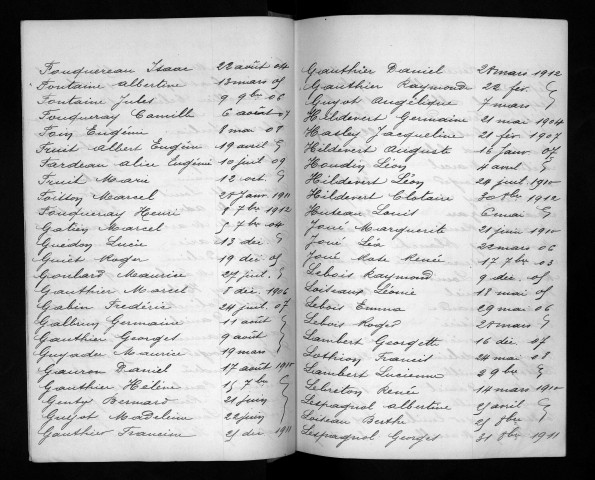 Fouquereau Isaac 22 août 04
Fontaine Albertine 13 mars 05
Fontaine Jules 9 9bre 06
Fouqueray Camille 6 août 07
Foin Eugénie 8 mai 08
Fruit Albert Eugène 19 avril
Fardeau alice Eugénie 10 juil 09
Fruit Marie 12 oct
Foisson Marcel 28 janv 1911
Fouqueray Henri 8 7bre 1912
Gatien Marcel 5 7bre 04
Guedon Lucie 13 déc
Guiet Roger 19 déc 05
Goulard Maurice 27 juil
Gauthier Marcel 8 déc 1906
Gabin Frédéric 24 juil 07
Galbrun Germaine 11 août
Gauthier Georges 9 août
Guyader Maurice 19 mars
Gauron Daniel 17 août 1910
Gauthier Hélène 15 7bre
Genty Bernard 21 juin
Guyot Madeleine 22 juin
Gauthier Francine 25 déc 1911
Gauthier Daniel 28 mars 1912
Gauthier Raymonde 22 fév
Guyot Angélique 7 mars
Hildevert Germaine 21 mai 1904
Hasley Jacqueline 21 fév 1907
Hildevert Auguste 16 janv 07
Houdin Léon 4 avril
Hildevert Léon 29 juil 1910
Hildevert Clotaire 30 8bre 1912
Huteau Louis 6 mai
Joué Marguerite 21 juin 1910
Joué Léa 22 mars 06
Joué Mate Renée 17 7bre 03
Lebois Raymond 9 déc 05
Loiseau Léonie 18 mai 05
Lebois Emma 29 mai 06
Lebois Roger 28 mars
Lambert Georgette 16 déc 07
Lothion Francis 24 mai 08
Lambert Lucienne 29 bre
Lebreton Renée 14 mars 1910
Lespagnol Albertine 25 avril
Loiseau Berthe 25 8bre
Lespagnol Georges 31 8bre 1911